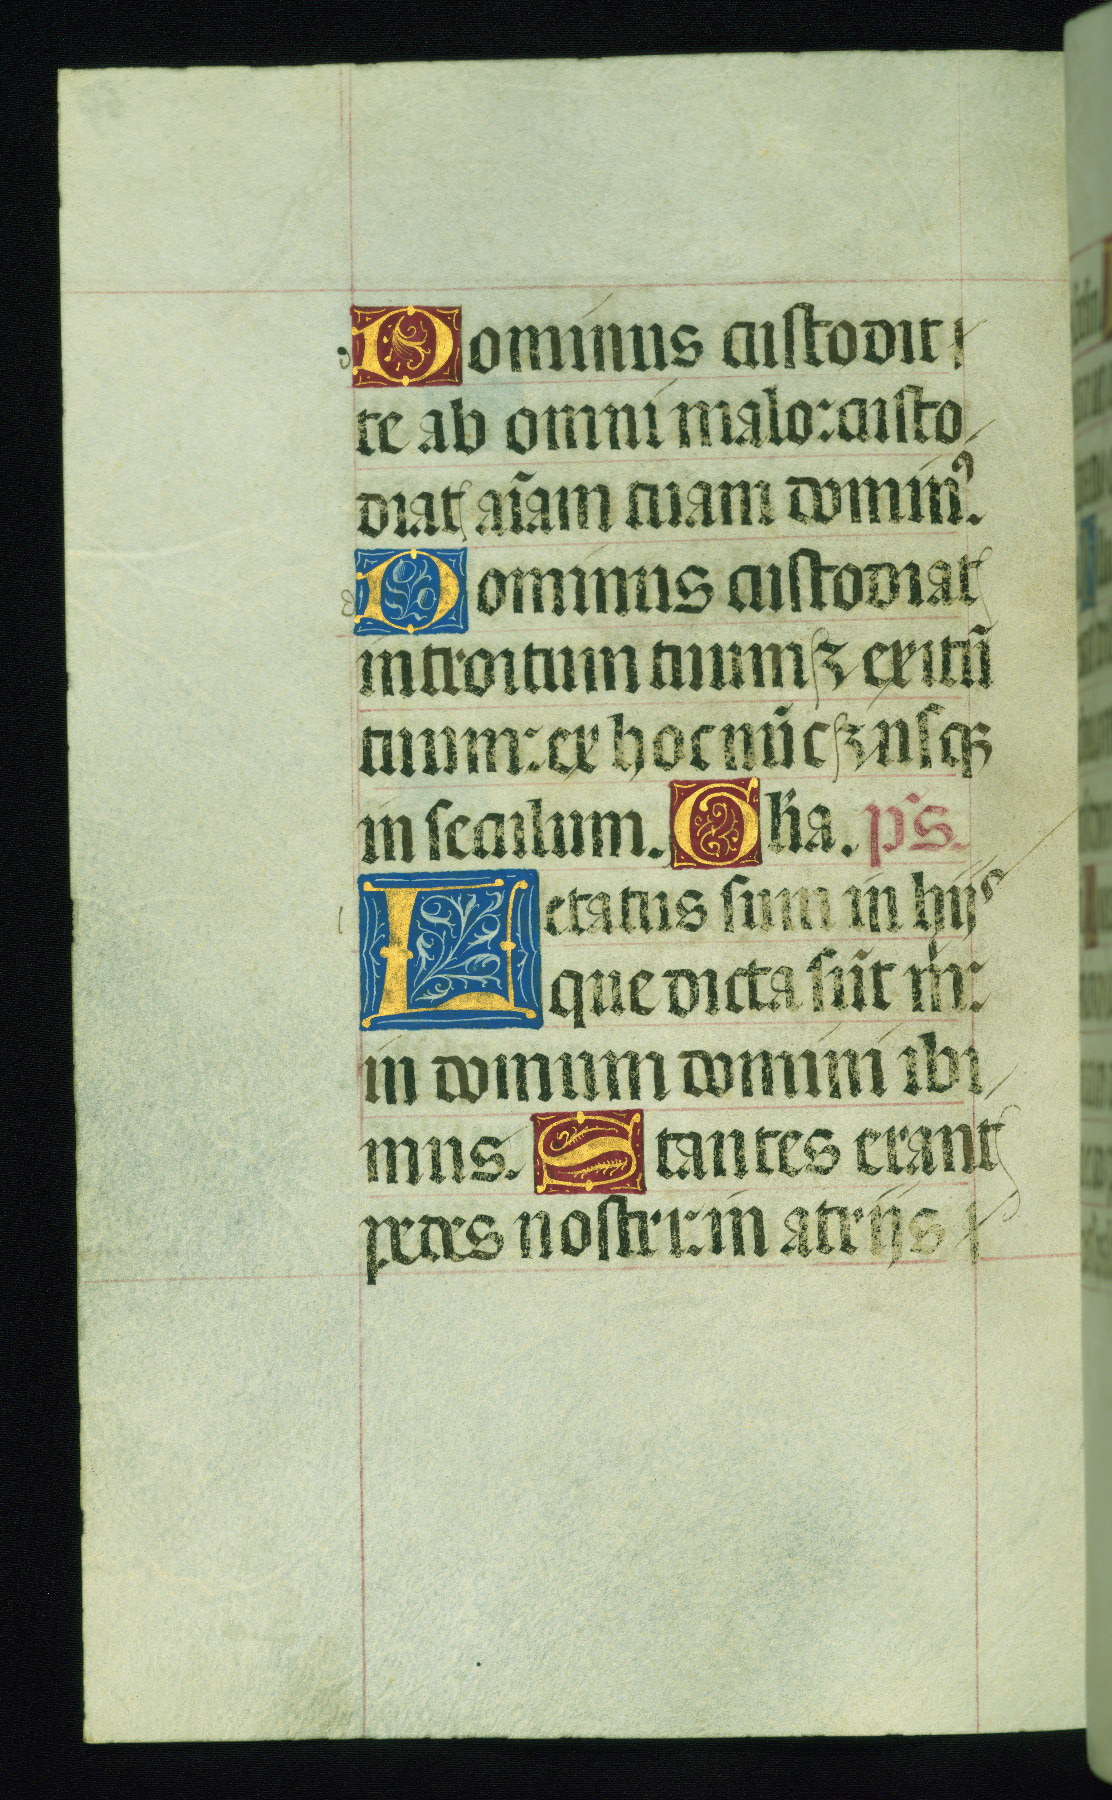 Dominus custodit
te ab omni malo: custo
diat aīam tuam domin⁹.
Dominus custodiat
introitum tuum ⁊ exitū
tuum: ex hoc nūc ⁊ usqꝫ
in seculum. Glīa. ps̄.
Letatus sum in hijs
que dicta sūt m̄:
in domum domini ibi
mus. Stantes erant
pedes nostri: in atrijs